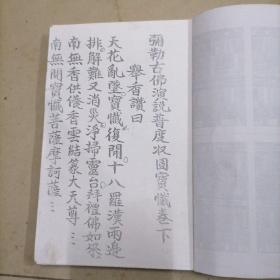 彌勒古佛演說普度收圓寶懺卷下
舉香讚曰
天花亂墜寶懺復開十八羅漢兩邊
排解難又消災淨掃靈台拜禮佛如來
南無香供養香雲結篆大天尊
南無開寶懺菩薩摩訶薩